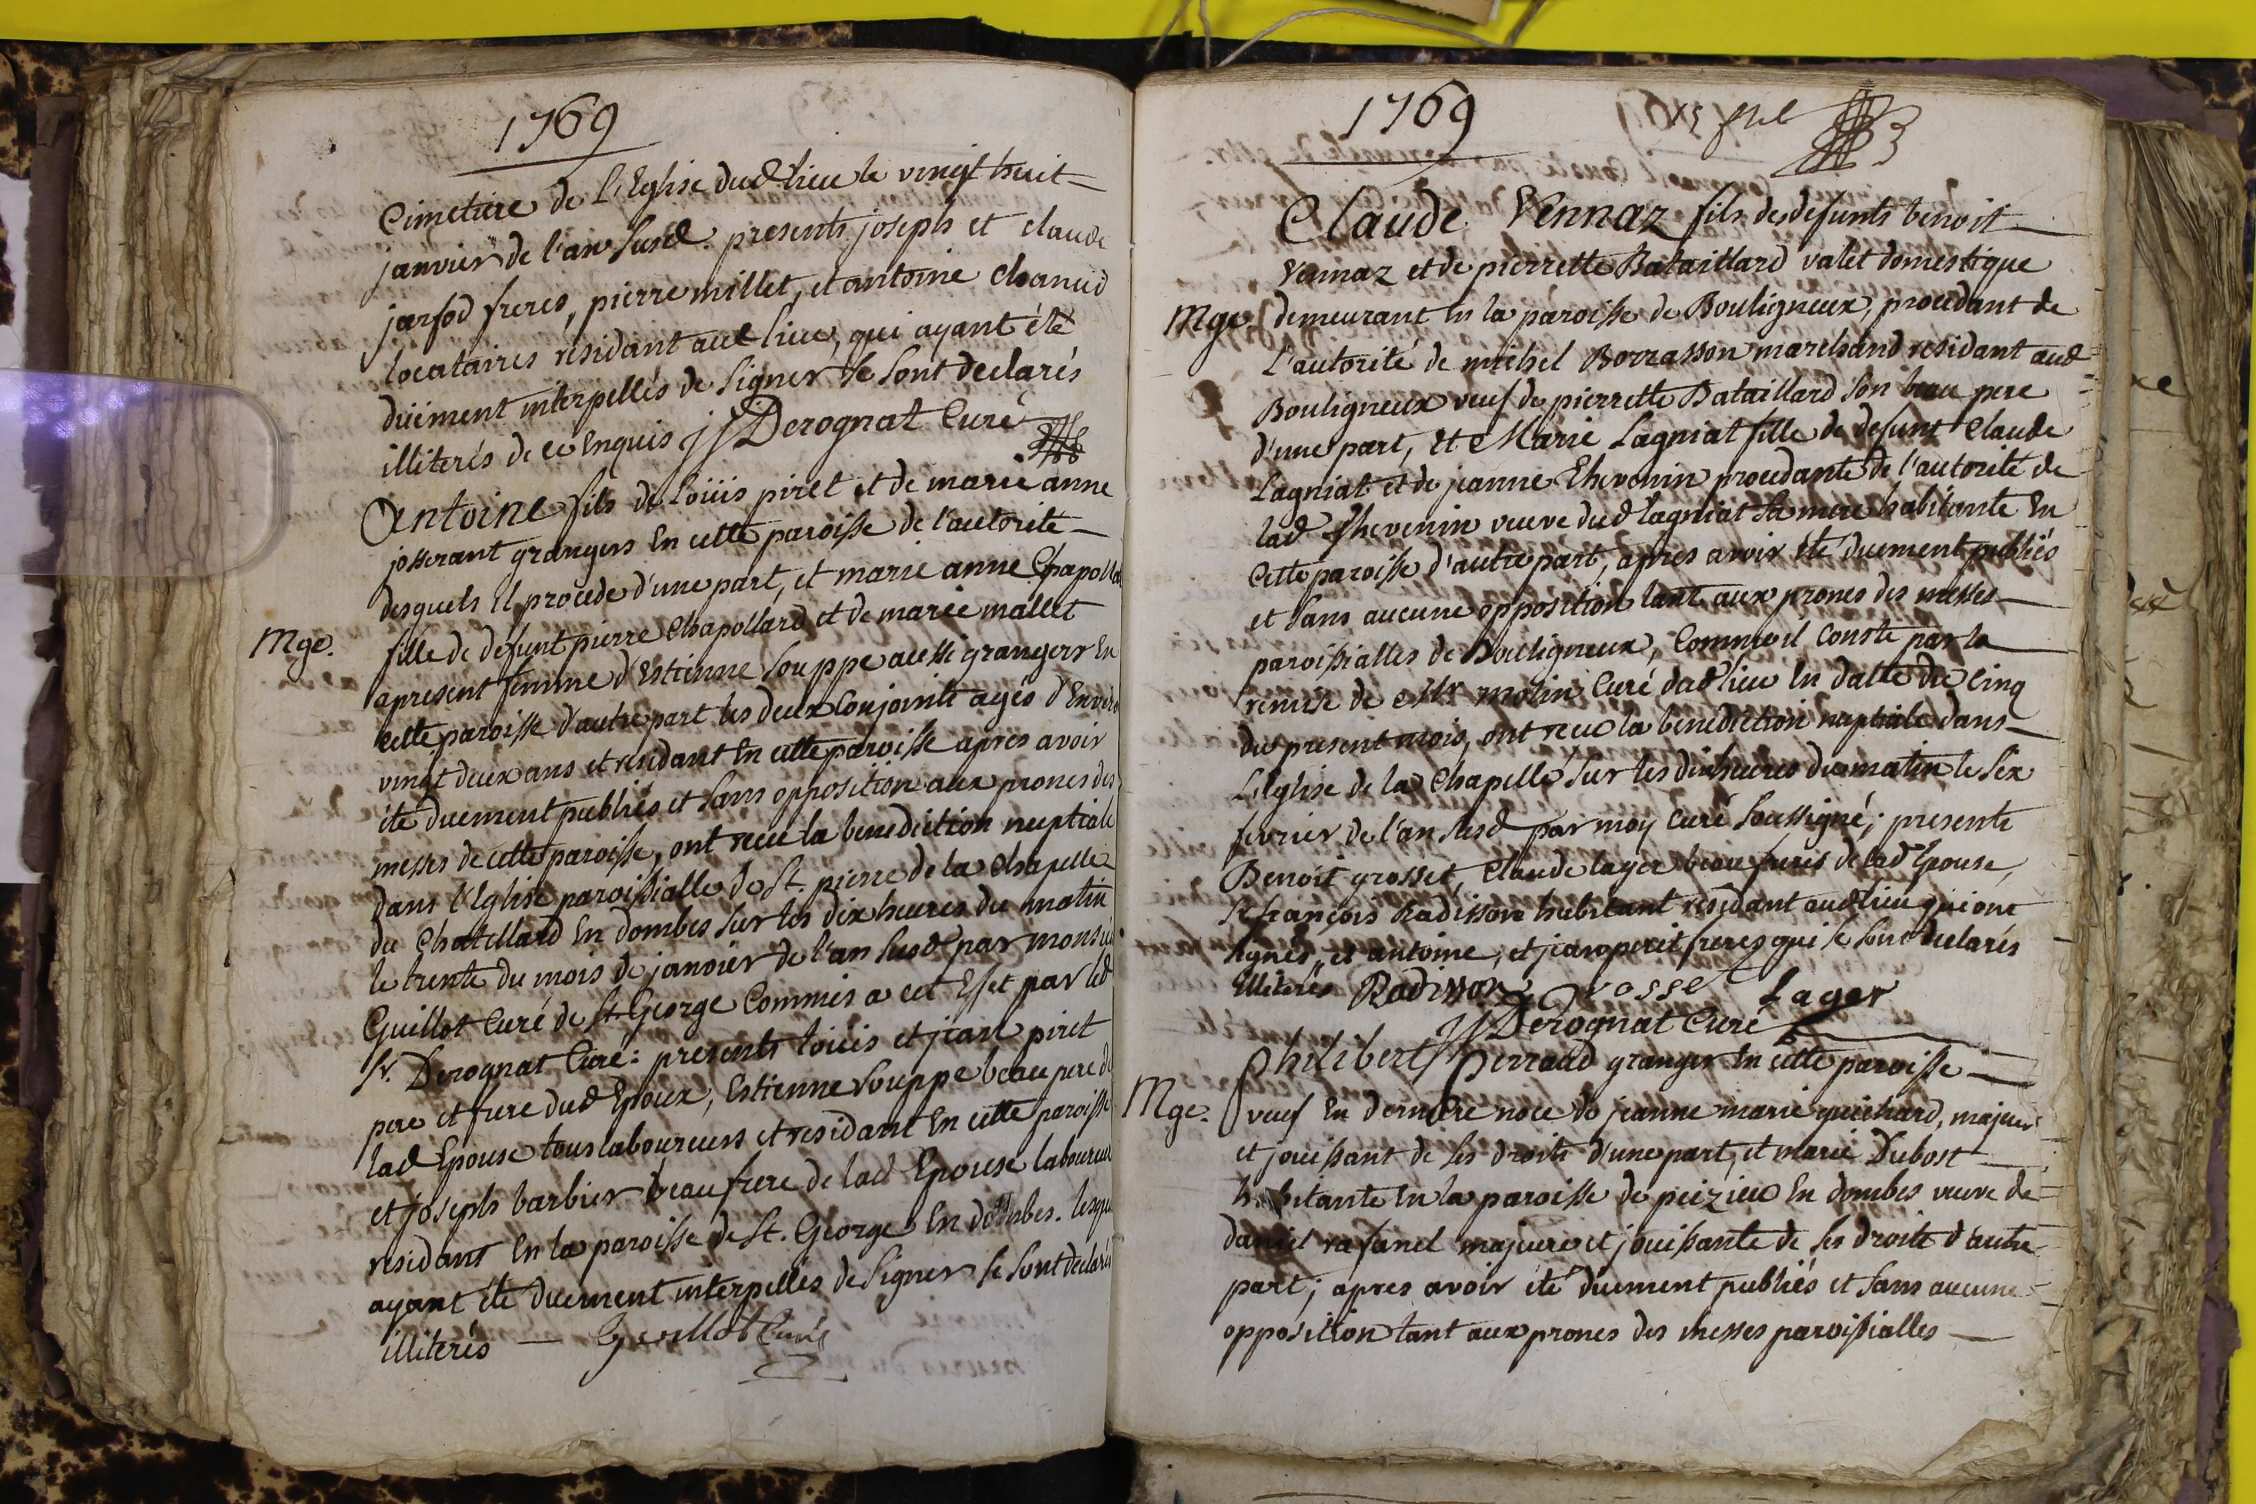 1769
Cimetiere de l'Eglise dud lieu le vingt huit
janvier de l'an susd. presents joseph et claude
jarfod freres, pierre millet, et antoine chanud
locataires residant aud lieu, qui ayant été
düement interpellés de signer se sont declarés
illiterés de ce enquis JJ Derognat Curé
Antoine fils de Loüis piret et de marie anne
josserant grangers en cette paroisse de l'autorité
desquels il procede d'une part, et marie anne Chapolla
Mge. fille de defunt pierre Chapollard et de marie mallet
apresent femme d'Estienne Souppe aussi grangers En
cette paroisse d'autre part les deux conjoints agés d'Enviro
vingt deux ans et residant En cette paroisse apres avoir
été duement publiés et sans opposition aux prones des
messes de cette paroisse, ont recu la benediction nuptiale
dans l'Eglise paroissialle de St. pierre de la Chapelle
du Chatellard En dombes sur les dix heures du matin
le trente du mois de janvier de l'an susd par monsieu
Guillot Curé de St. George Commis a cet Effet par led
Sr. Derognat Curé: presents loüis et jean piret
pere et frere dud Epoux, Estienne Souppe beau pere de
lad Epouse tous laboureurs et residant En cette paroisse
et joseph barbier beau frere de lad Epouse laboureur
residant En la paroisse de St. George En dombes. lesque
ayant été duement interpellés de signer se sont declarés
illiterés — Guillot Curé
1769
Claude Vennaz fils de defunts benoit
Vennaz et de pierrette Bataillard valet domestique
Mge. demeurant En la paroisse de Bouligneux, procedant de
l'autorité de michel Borrasson marchand residant aud
Bouligneux veuf de pierrette Bataillard son beau pere
d'une part, Et Marie Lagniat fille de defunt Claude
Lagniat et de jeanne Thevenin procedante de l'autorité de
lad Thevenin veuve dud Lagniat sa mere habitante En
Cette paroisse d'autre part, apres avoir été duement publiés
et sans aucune opposition tant aux prones des messes
paroissialles de Bouligneux, Comme il Conste par la
remise de Mr molin Curé dud lieu En datte du Cinq
du present mois, ont recu la benediction nuptiale dans
L'Eglise de la Chapelle sur les dix heures du matin le six
fevrier de l'an susd par moy Curé soussigné; presents
Benoit grosset, Claude lager beau freres de lad Epouse,
Sr françois Radisson habitant residant aud lieu qui ont
signés, et antoine, et jean perit freres qui se sont declarés
illiterés Radisson grosset Lager
JJ Derognat Curé
Philibert perraud granger En cette paroisse
Mge. veuf En derniere noce de jeanne marie guichard, majeur
et jouissant de ses droits d'une part, et marie Dubost
habitante En la paroisse de peizieu En dombes veuve de
daniel rafanel majeure et jouissante de ses droits d'autre
part; apres avoir été duement publiés et sans aucune
opposition tant aux prones des messes paroissialles